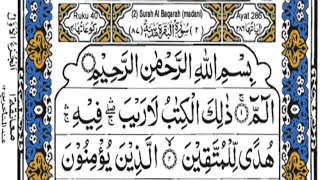 Ruku 40
(2) Surah Al Baqarah (madani)
Ayat 286
بِسْمِ اللّٰهِ الرَّحْمٰنِ الرَّحِيْمِ
الٓمّٓ ذٰلِكَ الْكِتٰبُ لَا رَيْبَ فِيْهِ
هُدًى لِّلْمُتَّقِيْنَ الَّذِيْنَ يُؤْمِنُوْنَ